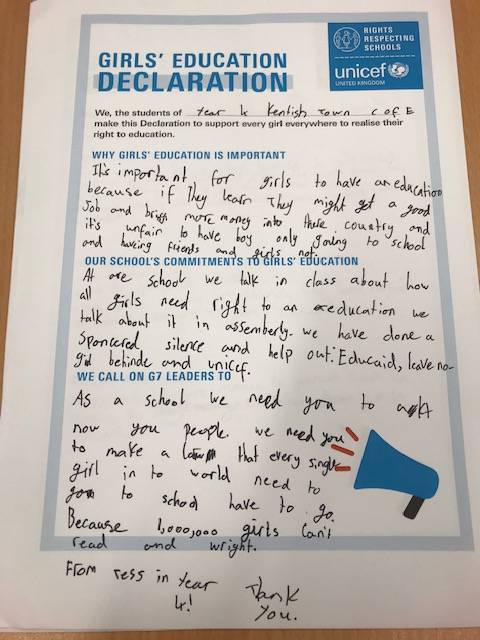 RIGHTS
RESPECTING
SCHOOLS
unicef
UNITED KINGDOM
GIRLS' EDUCATION
DECLARATION
We, the students of year 4 Kentish Town C of E
make this Declaration to support every girl everywhere to realise their
right to education.
WHY GIRLS' EDUCATION IS IMPORTANT
It's important for girls to have an education
because if They learn They might get a good
Job and bring more money into there country and
it's unfair to have boy only going to school
and having friends and girls not.
OUR SCHOOL'S COMMITMENTS TO GIRLS' EDUCATION
At are school we talk in class about how
all girls need right to an education we
talk about it in assemberly. we have done a
Sponcered silence and help out: Educaid, leave no-
girl behinde and unicef.
WE CALL ON G7 LEADERS TO
As a school we need you to act
now you people. we need you
to make a law that every single
girl in to world need to
go to school have to go.
Because 1,000,000 girls can't
read and wright.
From Tess in Year
4!
Thank
You.